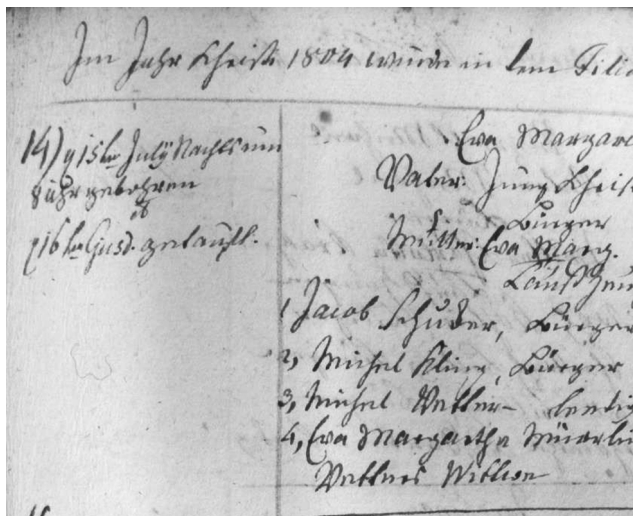 Im Jahr Christi 1804 wurde in dem Filia
14) d 15ten July Nachts um
8 Uhr gebohren
d 16ten getauft.
Eva Margare
Vater: Jung Chris
Bürger
Mutter: Eva Marg.
Taufzeu
1 Jacob Schuker, Bürger
2, Michel Kling, Bürger
3, Michel Vetter- ledig
4, Eva Margaretha
Wittwe